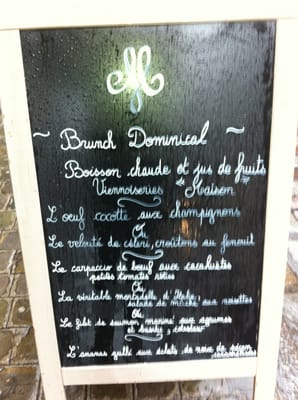 M
~ Brunch Dominical ~
Boisson chaude et jus de fruits
Viennoiseries Maison
L'œuf cocotte aux champignons
Ou
Le velouté de céleri, croûtons au fenouil
Le carpaccio de bœuf aux cacahuètes
petites tomates rôties
Ou
La véritable mortadelle d'Italie,
salade de mâche aux noisettes
Ou
Le filet de saumon mariné aux agrumes
et basilic,
L'ananas grillé aux éclats de noix de pécan